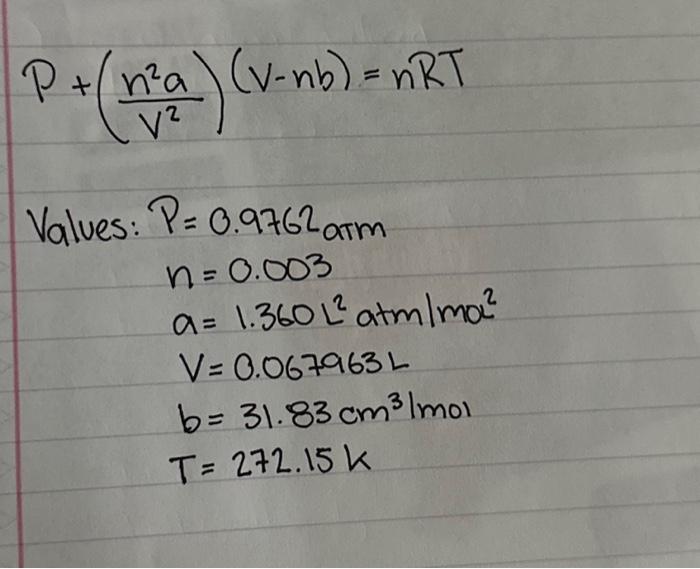 P + (n²a/V²) (V-nb) = nRT
Values: P = 0.9762 atm
n = 0.003
a = 1.360 L² atm/mol²
V = 0.067963 L
b = 31.83 cm³/mol
T = 272.15 K